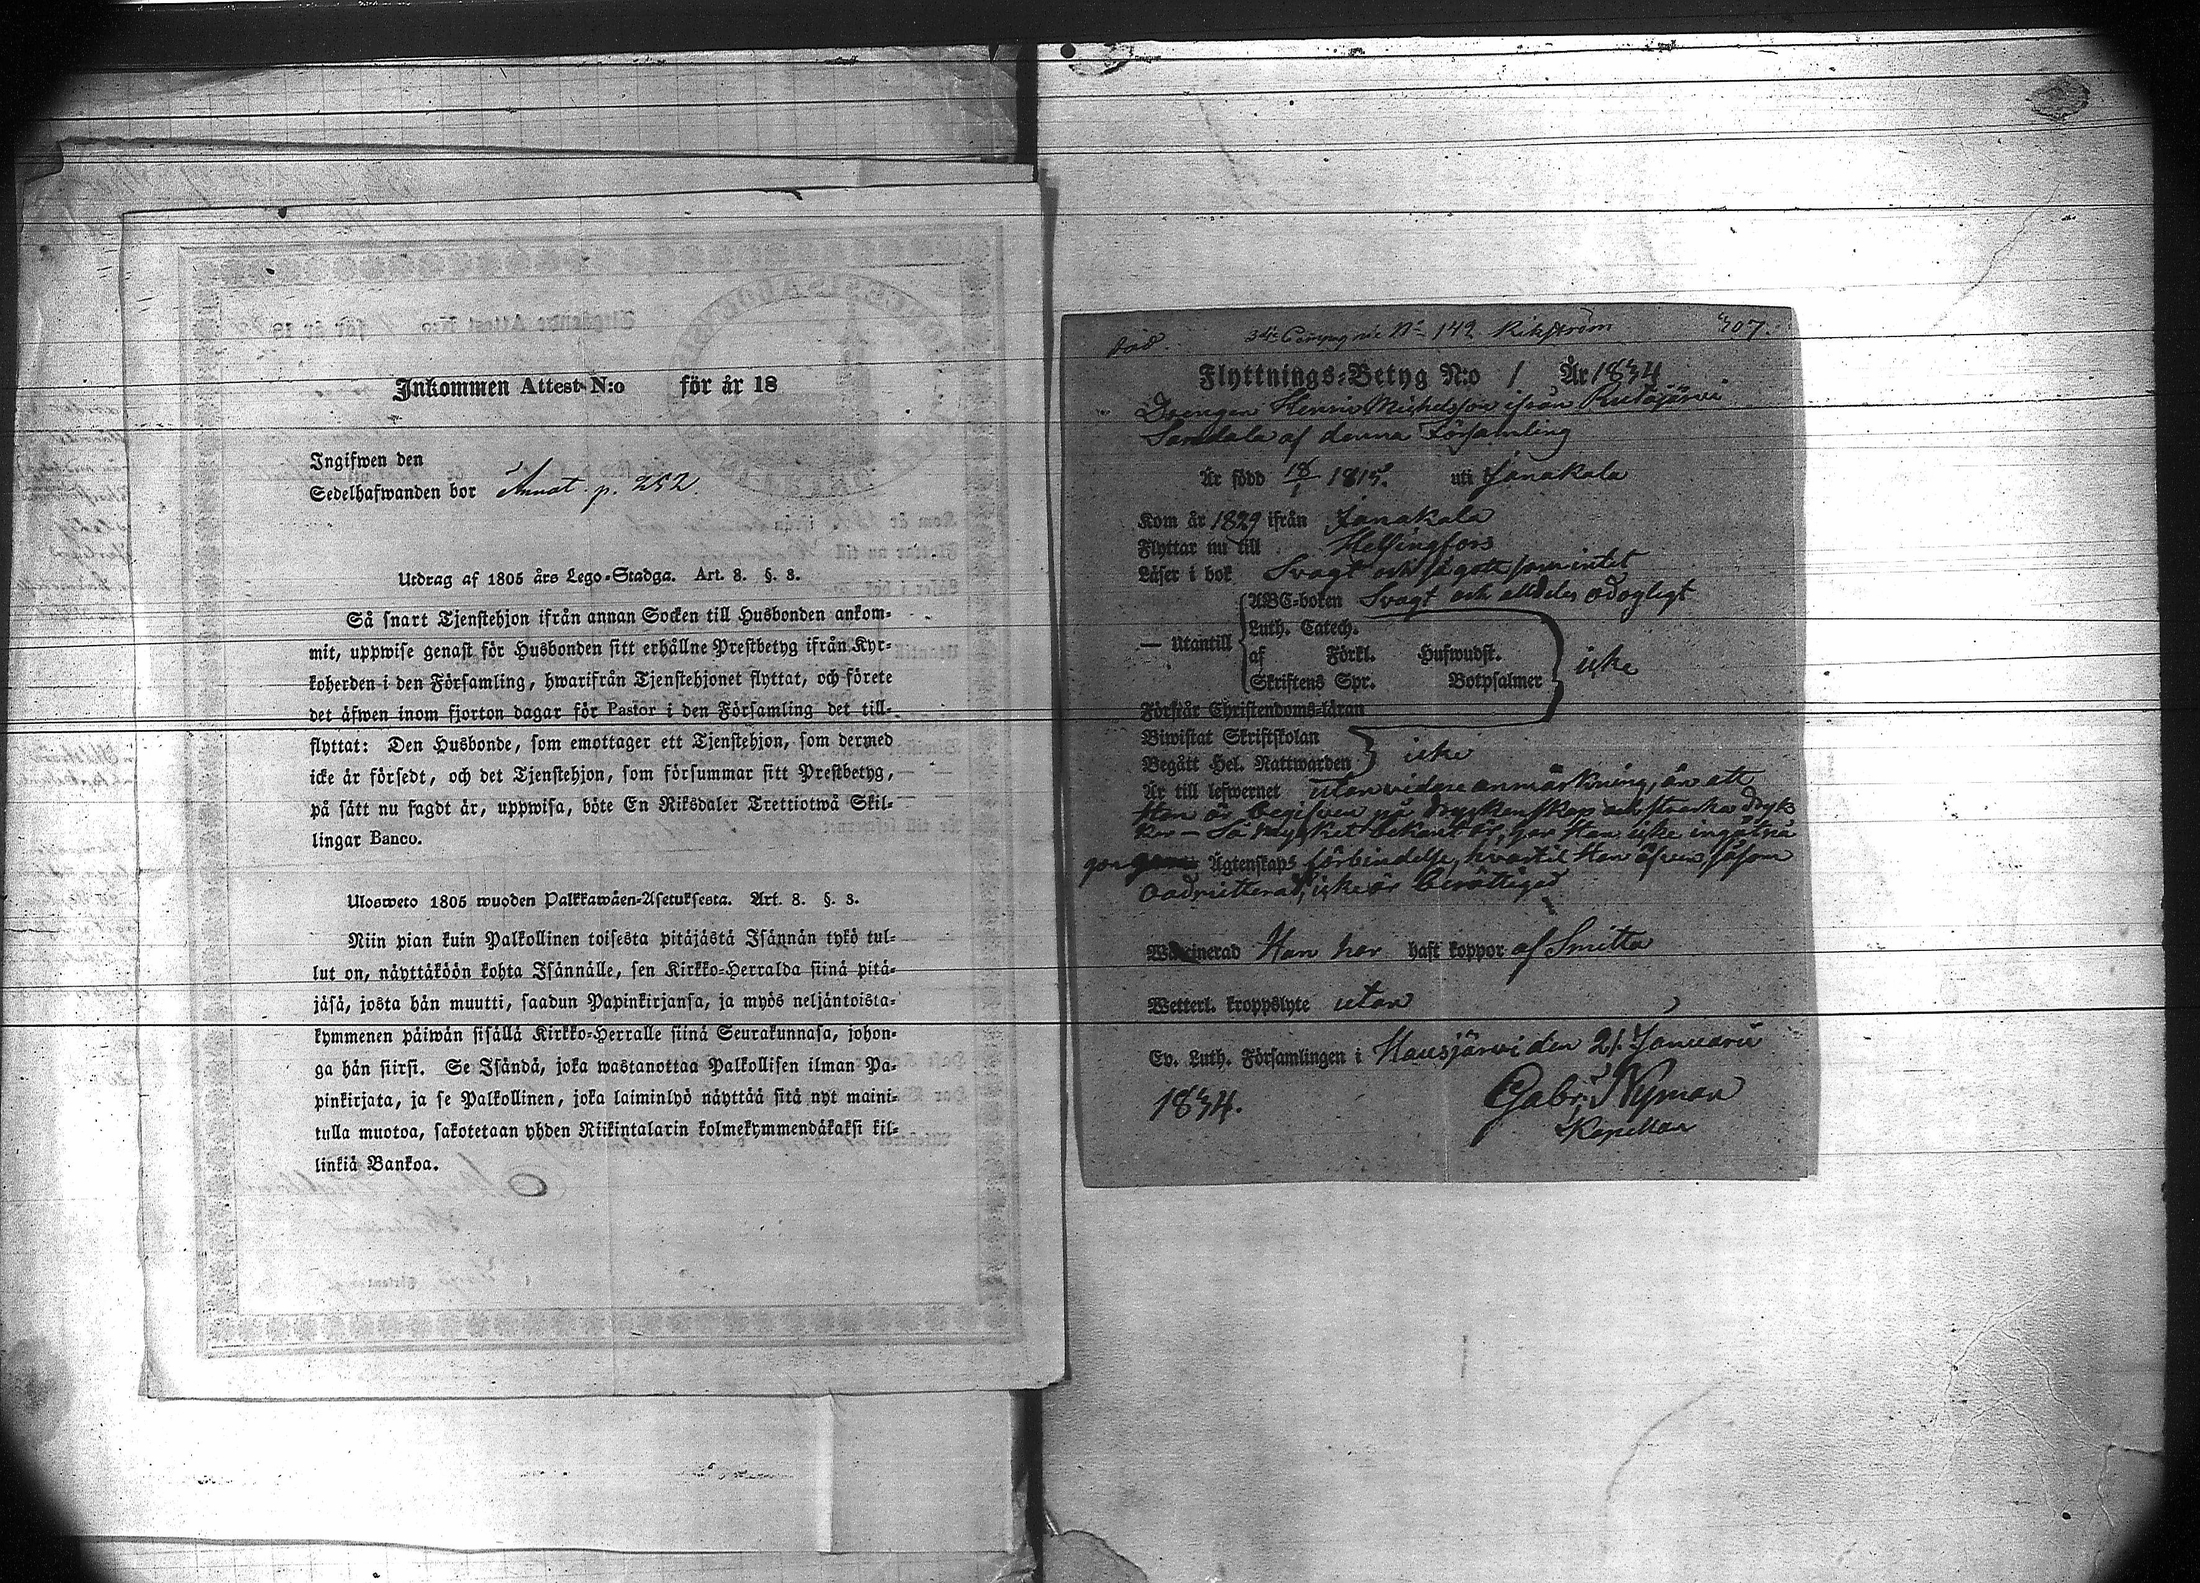 Inkommen Attest N:o för år 18
Ingifwen den
Sedelhafwanden bor Annat. p. 252.
Utdrag af 1805 års Lego-Stadga. Art. 8. §. 3.
Så snart Tjenstehjon ifrån annan Socken till Husbonden ankom-
mit, uppwise genast för Husbonden sitt erhållne Prestbetyg ifrån Kyr-
koherden i den Församling, hwarifrån Tjenstehjonet flyttat, och förete
det äfwen inom fjorton dagar för Pastor i den Församling det till-
flyttat: Den Husbonde, som emottager ett Tjenstehjon, som dermed
icke är försedt, och det Tjenstehjon, som försummar sitt Prestbetyg,
på sätt nu sagdt är, uppwisa, böte En Riksdaler Trettiotwå Skil-
lingar Banco.
Ulosweto 1805 wuoden Palkkawäen-Asetuksesta. Art. 8. §. 3.
Niin pian kuin Palkollinen toisesta pitäjästä Isännän tykö tul-
lut on, näyttäköön kohta Isännälle, sen Kirkko-Herralda siinä pitä-
jäsä, josta hän muutti, saadun Papinkirjansa, ja myös neljäntoista-
kymmenen päiwän sisällä Kirkko-Herralle siinä Seurakunnasa, johon-
ga hän siirsi. Se Isändä, joka wastanottaa Palkollisen ilman Pa-
pinkirjata, ja se Palkollinen, joka laiminlyö näyttää sitä nyt maini-
tulla muotoa, sakotetaan yhden Riikintalarin kolmekymmendäkaksi kil-
linkiä Bankoa.
död. 3die Compagnie No 149 Rikström 307.
Flyttnings-Betyg N:o 1 År 1834
Drengen Henric Michelsson ifrån Ruta järvi
Samdala af denna Församling
Är född 18/1 1815. uti Janakala
Kom år 1829 ifrån Janakala
Flyttar nu till Helsingfors
Läser i bok Svagt och så godt som intet
ABC-boken Svagt och alldeles odogligt
— Utantill Luth. Catech.
af Förkl. Hufwudst. icke
Skriftens Spr. Botpsalmer
Förstår Christendoms-läran
Biwistat Skriftskolan
Begått Hel. Nattwarden icke
Är till lefwernet utan vidare anmärkning, än att
Han är begifven på dryckenskap och starka dryc
ker — Så mycket bekant är, har Han icke ingått nå
gon Ägtenskaps förbindelse, hvartil Han äfven såsom
oadmitterad, icke är berättigad
Waccinerad Han har haft koppor af Smitta
Wetterl. kroppslyte utan
Ev. Luth. Församlingen i Hausjärvi den 21. Januarii
1834. Gabr. Nyman
Kapellan